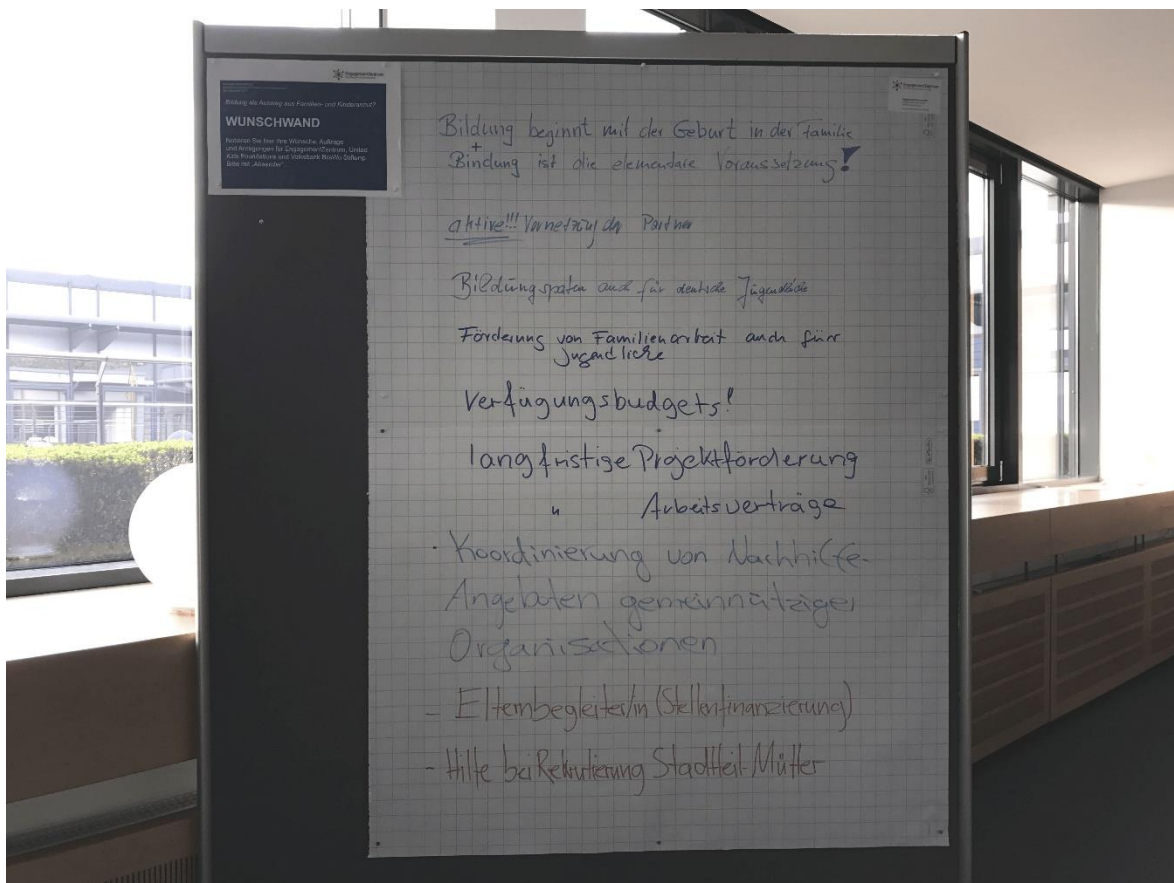 EngagementZentrum
Bildung als Ausweg aus Familien- und Kinderarmut?
WUNSCHWAND
Notieren Sie hier Ihre Wünsche, Aufträge
und Anregungen für EngagementZentrum, United
Kids Foundations und Volksbank BraWo Stiftung.
Bitte mit „Absender“.
EngagementZentrum
Bildung beginnt mit der Geburt in der Familie
+
Bindung ist die elementare Voraussetzung!
aktive!!! Vernetzung der Partner
Bildungspaten auch für deutsche Jugendliche
Förderung von Familienarbeit auch für
Jugendliche
Verfügungsbudgets!
langfristige Projektförderung
" Arbeitsverträge
· Koordinierung von Nachhilfe-
Angeboten gemeinnütziger
Organisationen
- Elternbegleiter/in (Stellenfinanzierung)
- Hilfe bei Rekrutierung Stadtteil-Mütter